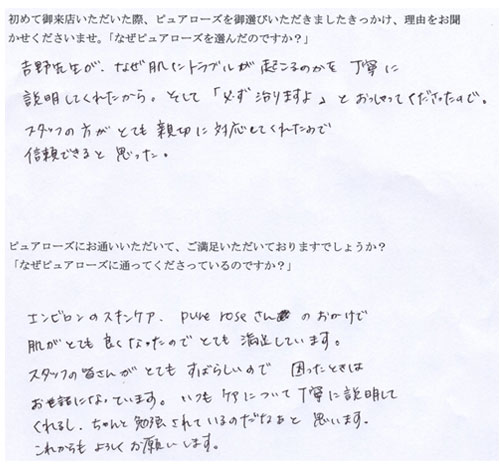 初めて御来店いただいた際、ピュアローズを御選びいただきましたきっかけ、理由をお聞
かせくださいませ。「なぜピュアローズを選んだのですか？」
吉野先生が、なぜ肌にトラブルが起こるのかを丁寧に
説明してくれたから。そして「必ず治りますよ」とおっしゃってくださったので。
スタッフの方がとても親切に対応してくれたので
信頼できると思った。
ピュアローズにお通いいただいて、ご満足いただいておりますでしょうか？
「なぜピュアローズに通ってくださっているのですか？」
エンビロンのスキンケア、pure roseさんのおかげで
肌がとても良くなったのでとても満足しています。
スタッフの皆さんがとてもすばらしいので困ったときは
お世話になっています。いつもケアについて丁寧に説明して
くれるし、ちゃんと勉強されているのだなあと思います。
これからもよろしくお願いします。